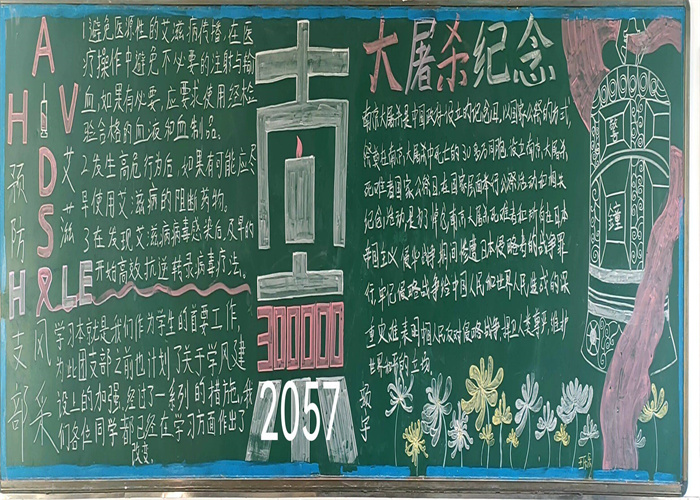 AIDS
HIV
预防艾滋
1避免医源性的艾滋病传播,在医
疗操作中避免不必要的注射与输
血,如果有必要,应要求使用经检
验合格的血液和血制品。
2.发生高危行为后,如果有可能应尽
早使用艾滋病的阻断药物。
3.在发现艾滋病病毒感染后,及早的
开始高效抗逆转录病毒疗法。
HLE
支部风采
学习本就是我们作为学生的首要工作,
为此团支部之前也计划了关于学风建
设上的加强,经过了一系列的措施,我
们各位同学都已经在学习方面作出了
改变。
南京
300000
2057
大屠杀纪念
南京大屠杀是中国政府设立的纪念日,以国家公祭的方式,
祭奠在南京大屠杀中死亡的30多万同胞,设立南京大屠杀
死难者国家公祭日,在国家层面举行公祭活动和相关
纪念活动是为了悼念南京大屠杀死难者和所有在日本
帝国主义侵华战争期间惨遭日本侵略者的战争罪
行,牢记侵略战争给中国人民和世界人民造成的深
重灾难,表明中国人民反对侵略战争,捍卫人类尊严,维护
世界和平的立场。
警钟